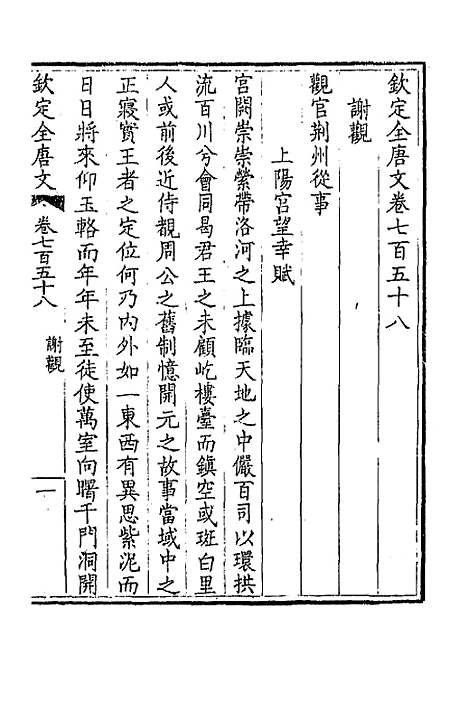 欽定全唐文卷七百五十八
謝觀
觀官荆州從事
上陽宮望幸賦
宮闕崇崇縈帶洛河之上據臨天地之中儼百司以環拱
流百川兮會同曷君王之未顧屹樓臺而鎮空或斑白里
人或前後近侍覩周公之舊制憶開元之故事當域中之
正寢實王者之定位何乃內外如一東西有異思紫泥而
日日將來仰玉輅而年年未至徒使萬室向曙千門洞開
欽定全唐文 卷七百五十八 謝觀 一